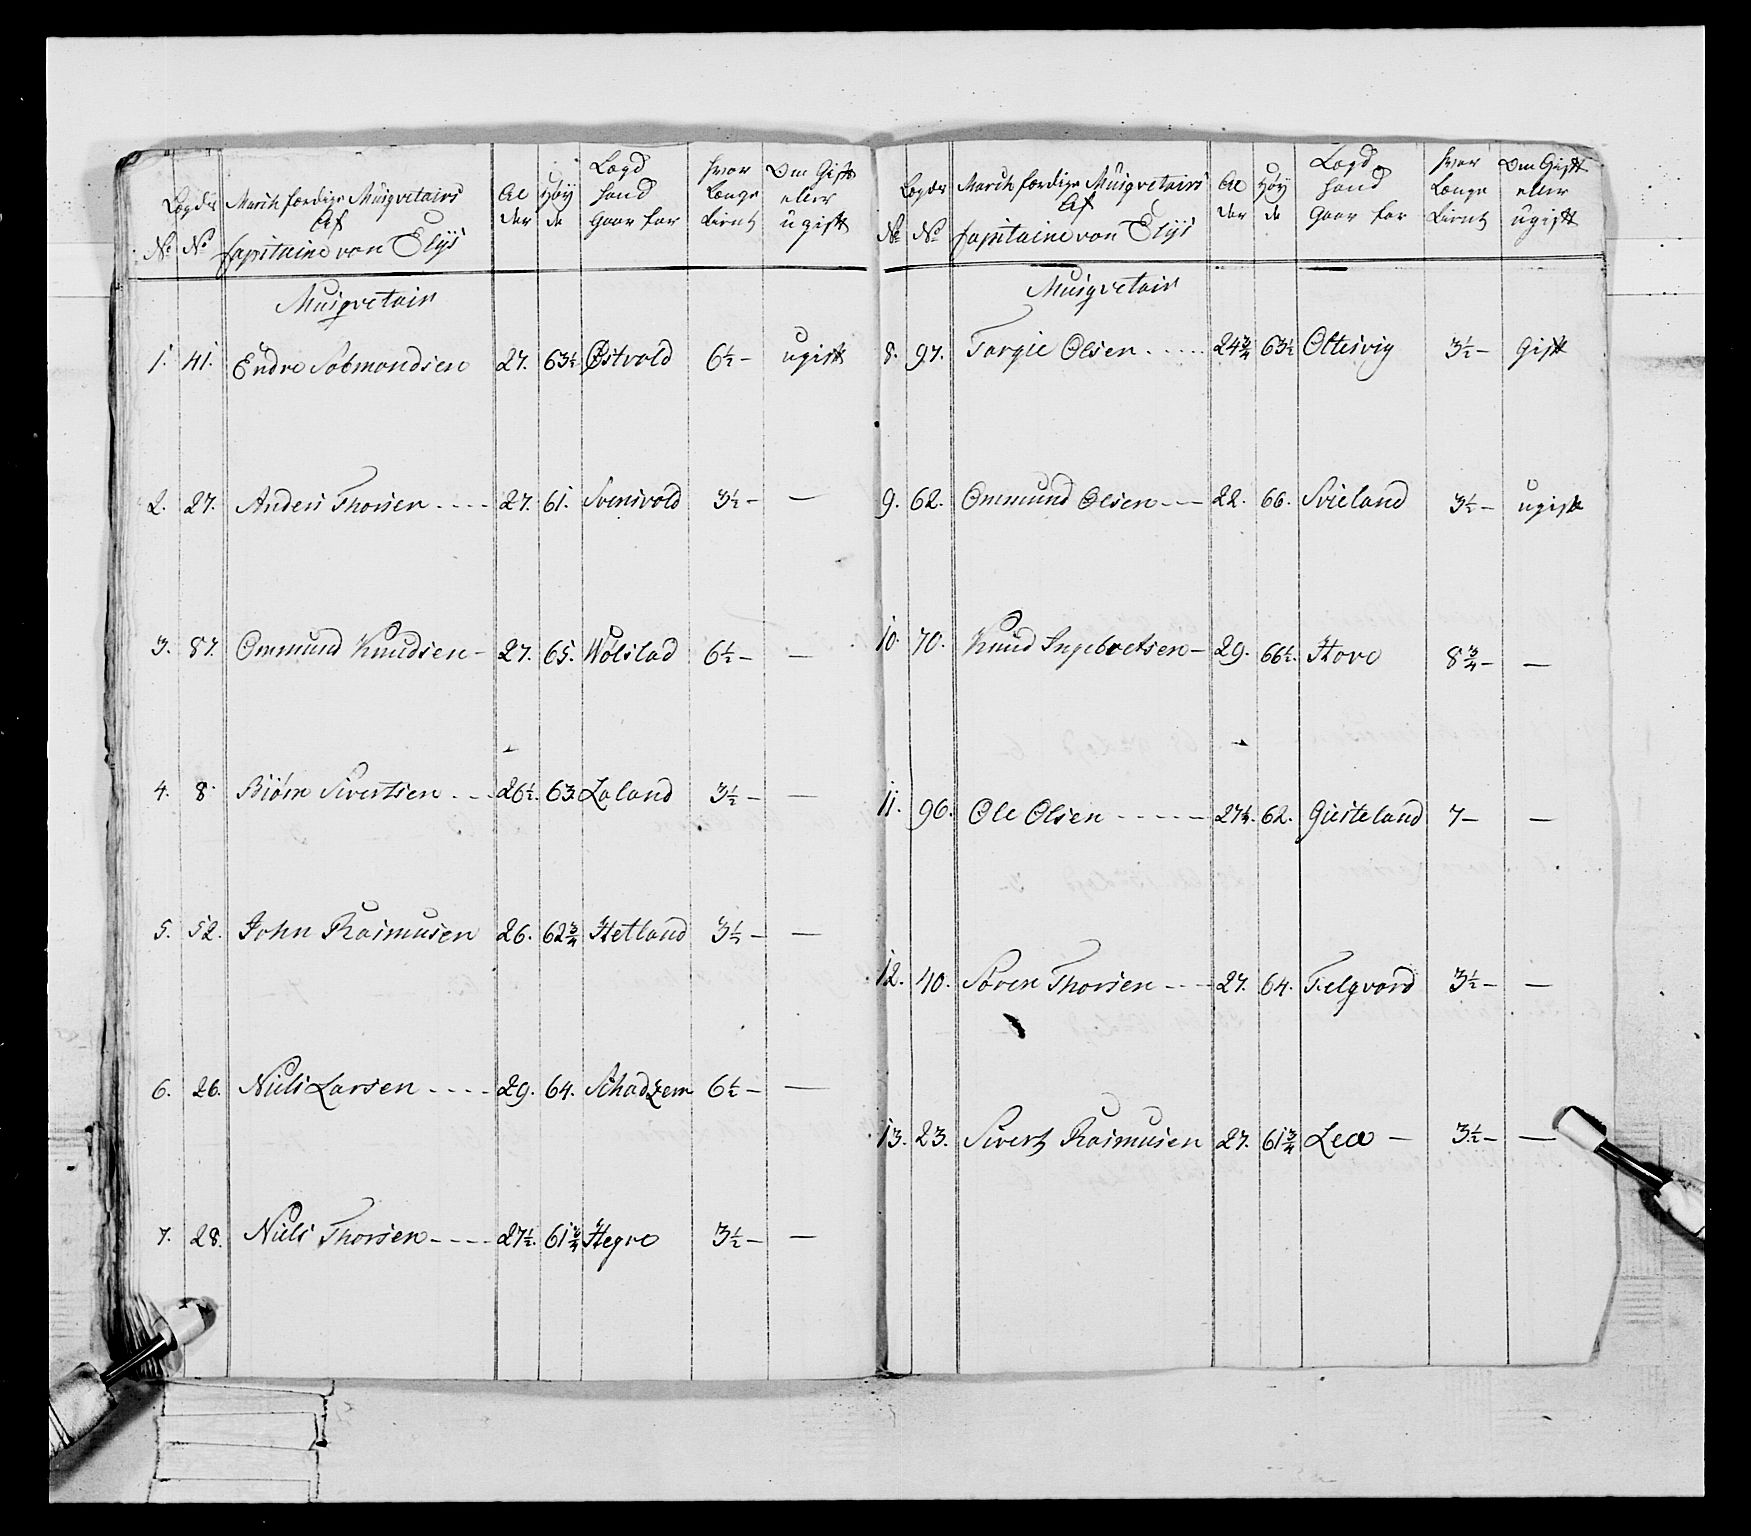 No
Lægdes No
March færdige Musqvetairs
Af
Capitaine von Elys
Al
der
Høy
de
Lægd
hand
Gaar for
hvor
Længe
tient
Om Gift
eller
ugift
Musqvetair
1. 41. Endre Solmondsen 27. 63½ Østvold 6½ — ugift
2. 27. Anders Thorsen 27. 61. Svensvold 3½ — —
3. 87. Ommund Knudsen 27. 65. Wølstad 6½ — —
4. 8. Biørn Sivertsen 26½. 63. Laland 3½ — —
5. 52. John Rasmusen 26. 62¾ Hetland 3½ — —
6. 26. Niels Larsen 29. 64. Schadzem 6½ — —
7. 28. Niels Thorsen 27½. 61¾ Hegre 3½ — —
No
Lægdes No
March færdige Musqvetairs
Af
Capitaine von Elys
Al
der
Høy
de
Lægd
hand
Gaar for
hvor
Længe
tient
Om Gift
eller
ugift
Musqvetair
8. 97. Torgie Olsen 24¾ 63½ Oltesvig 3½ — Gift
9. 62. Ommund Olsen 22. 66. Svieland 3½ — ugift
10. 70. Knud Ingebretsen 29. 66½. Hove 8¾ — —
11. 96. Ole Olsen 27½. 62. Giesteland 7 — —
12. 40. Søren Thorsen 27. 64. Fielgvard 3½ — —
13. 23. Sivert Rasmusen 27. 61¾ Lea — 3½ — —